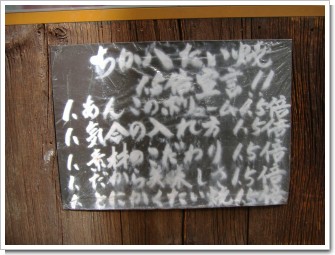 ちからたい焼
1.5倍宣言!!
1. あんこのボリューム1.5倍
1. 気合の入れ方1.5倍
1. 素材のこだわり1.5倍
1. だから美味しさ1.5倍
1. とにかくたい焼1.5倍